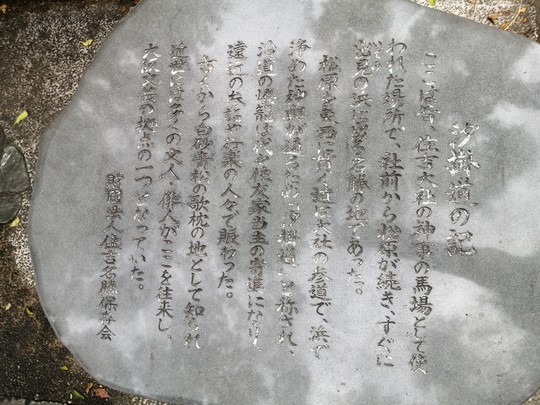 汐掛道の記
ここは昔、住吉大社の神事の馬場として使
われた場所で、社前から松原が続き、すぐに
出見の浜に出る名勝の地であった。
松原を東西に貫く道は大社の参道で、浜で
浄めた神輿が通るため「汐掛道」と称され、
沿道の燈籠は代々住友家当主の寄進になり、
遠近の参詣や行楽の人々で賑わった。
古くから白砂青松の歌枕の地として知られ
近世には多くの文人・俳人がここを往来し、
大阪文芸の拠点の一つとなっていた。
財団法人住吉名勝保存会